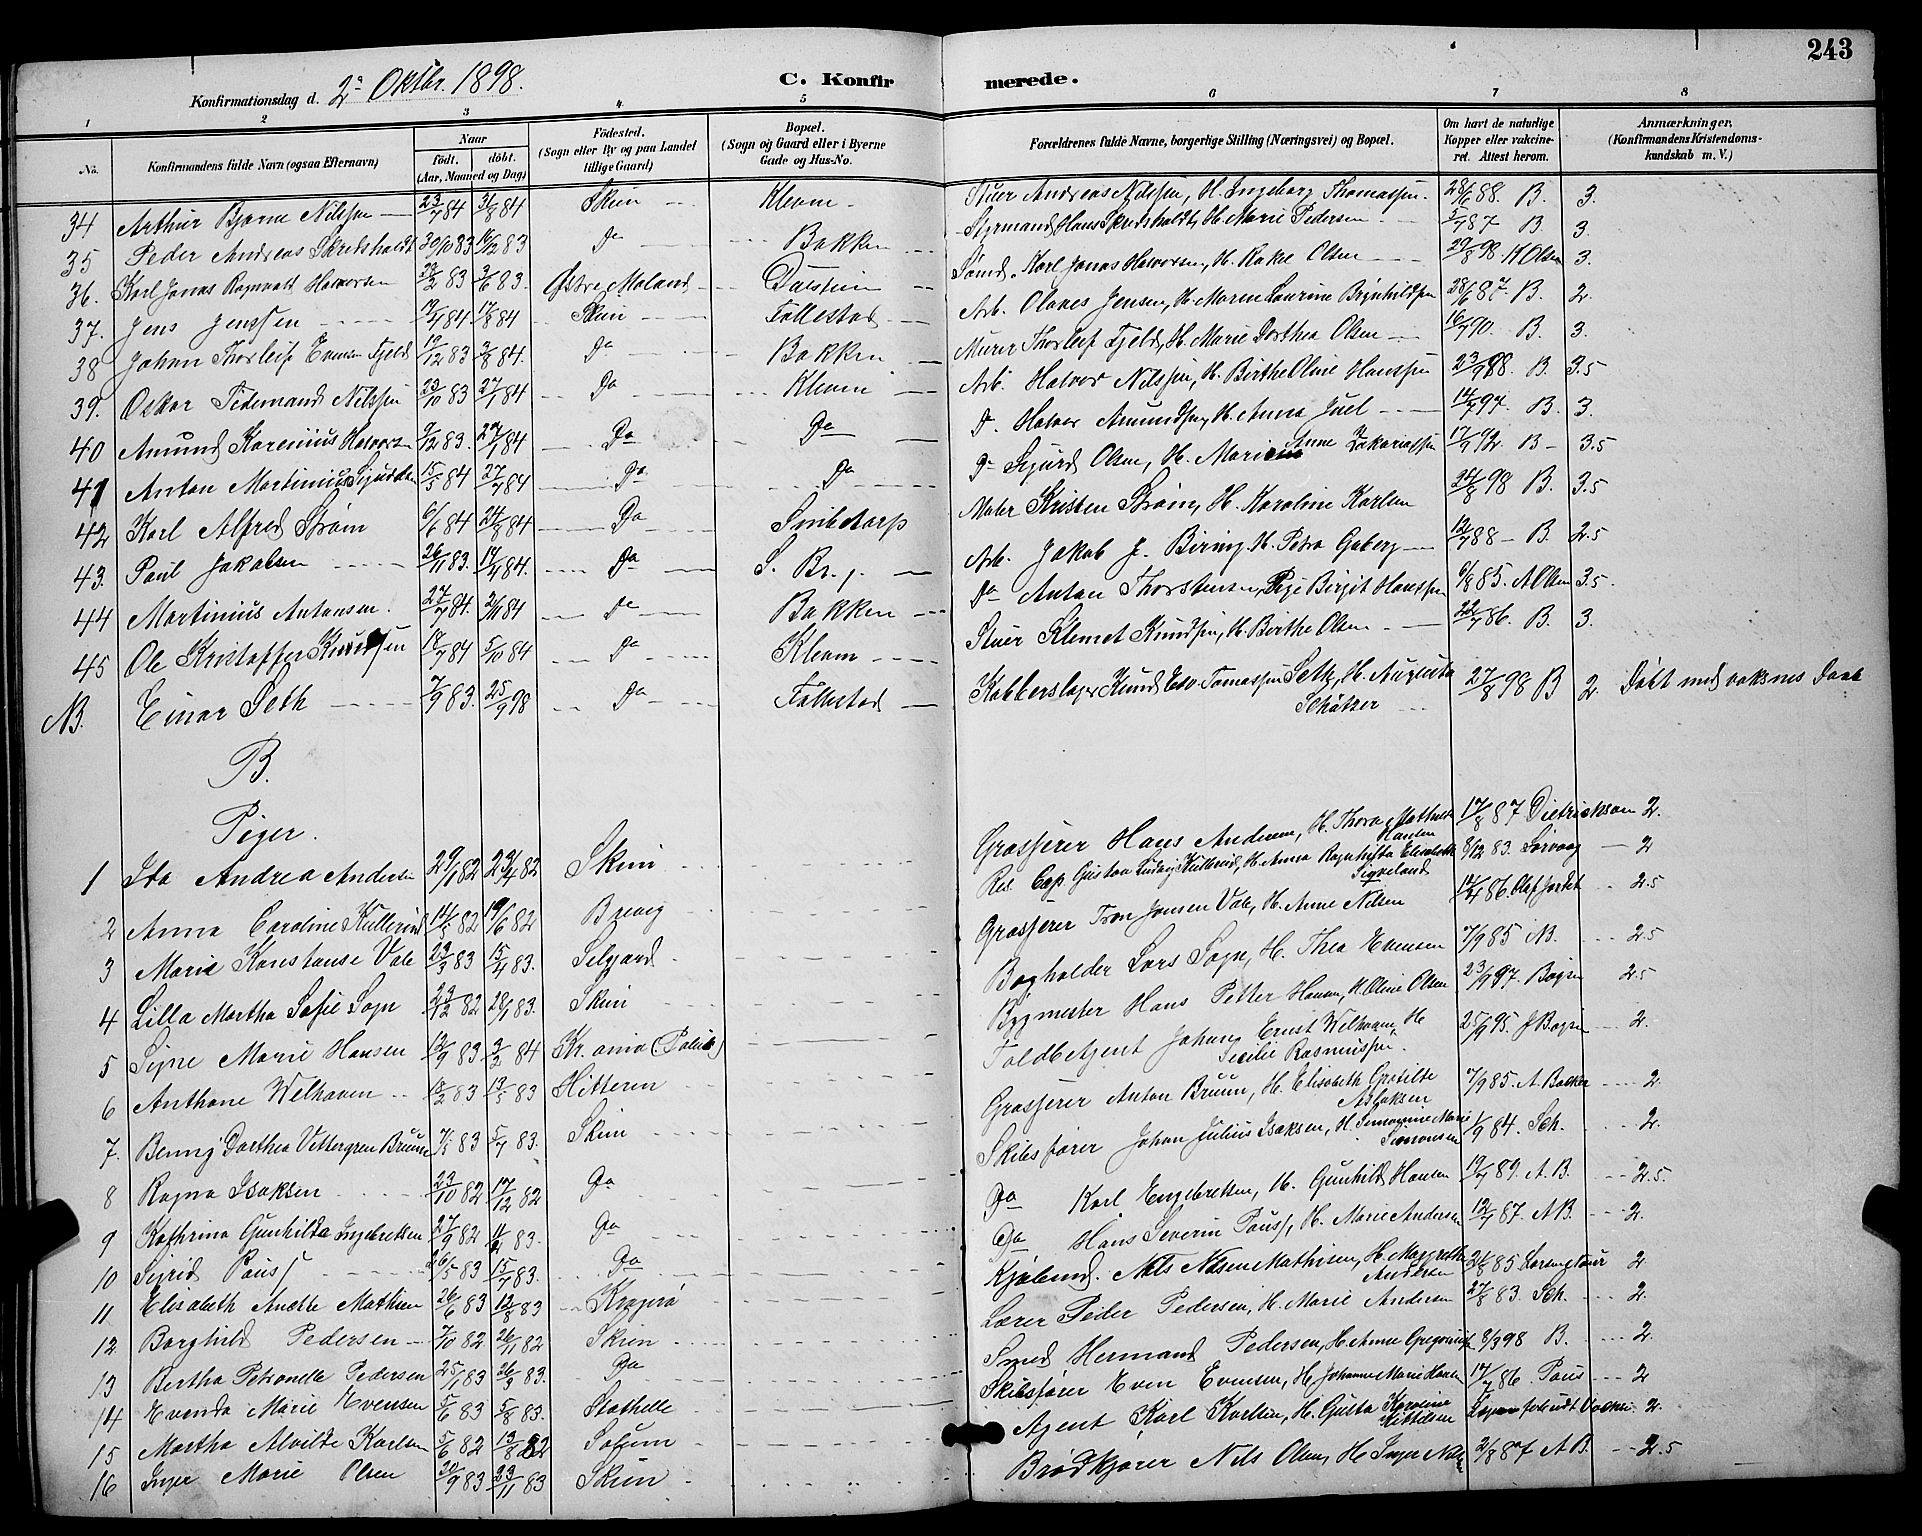 243
Konfirmationsdag d. 2den Oktbr. 1898.
C. Konfirmerede.
1 2 3 4 5 6 7 8
No. Konfirmandens fulde Navn (ogsaa Efternavn) Naar født. døbt. (Aar, Maaned og Dag) Fødested. (Sogn eller By og paa Landet tillige Gaard) Bopæl. (Sogn og Gaard eller i Byerne Gade og Hus-No. Forældrenes fulde Navne, borgerlige Stilling (Næringsvei) og Bopæl. Om havt de naturlige Kopper eller vakcineret. Attest herom. Anmærkninger, (Konfirmandens Kristendomskundskab m. V.)
34 Arthur Bjarne Nilssen 23/7 84 31/8 84 Skien Kleven Stuer Andreas Nilssen, H. Ingeborg Thomassen 28/6 88. B. 3.
35 Peder Andreas Skredsholdt 30/10 83 16/12 83 Do Bakken Styrmand Hans Skredsholdt, H. Marie Pedersen 5/7 87 B. 3.
36. Karl Jonas Ragnvald Halvorsen 22/2 83 3/6 83. Østre Moland Sømd. Karl Jonas Halvorsen, H. Rakel Olsen 29/8 98 H Olsen 3.
37. Jens Jenssen 84. 17/8 84 Skien Follestad Arb. Olaves Jensen, H. Maren Laurine Brynhildsen 28/6 87. B. 2.
38 Johan Thorleif Evensen Fjeld 19/12 83 3/8 84. Do Bakken Murer Thorleif Fjeld, H. Marie Dorthea Olsen 16/7 90. B. 3.
39. Oskar Tidemand Nilssen 23/10 83 27/1 84 Do Kleven Arb. Halvor Nilssen, H. Birthe Oline Hanssen 23/9 88. B. 3.5
40 Amund Karenius Halvors. 9/12 83. 27/1 84 Do Do D. Halvor Amundsen, H. Anna Juel 14/7 97. B. 3.
41 Anton Martinius Sigurdsen 15/5 84 27/7 84 Do Do Do Sigurd Olsen, H. Anne Zakariassen 17/9 92. B 3.5
42 Karl Alfred Strøm 6/6 84 24/8 84 Do Snibetorp Maler Kristen Strøm, H. Karoline Karlsen 24/8 98 B. 3.5
43. Paul Jakobsen 26/11 83. 14/4 84. Do S. Br.g. Arb. Jakob J. Biring, H. Petra Gaberg 12/7 88 B. 2.5
44 Martinius Antonsen. 27/7 84. 2/11 84 Do Bakken Do Anton Thorstensen, Pige Birgit Hanssen 6/8 85. A Olsen 3.5.
45 Ole Kristoffer Knudsen 18/7 84 5/10 84 Do Kleven Stuer Klemet Knudsen, H. Birthe Olsen 22/7 86. B. 3.
NB. Einar Seth 7/9 83. 25/9 98 Do Follestad Kobberslager Knud Edv. Tomassen Seth, H. Augusta Schøtzer 27/8 98 B 2. Døbt med voksnes Daab
B.
Piger.
1 Ida Andrea Andersen 29/1 82 23/4 82 Skien Grosserer Hans Andersen, H. Thora Mathilde Hansen 17/8 87 Dietrickson 2.
2 Anna Caroline Kullerud 14/5 82 19/6 82 Brevig Res Cap Gustav Ludvig Kullerud, H. Anna Ragnhilda Elisabeth Sigveland 8/12 83. Sørvaag 2
3 Marie Konstanse Vale 23/3 83 15/4 83. Selgard Grosserer Tron Jonsen Vale, H. Anne Nilsen 14/4 86. Olaf Jordet 2.5
4 Lilla Martha Sofie Sage 23/12 82 28/1 83. Skien Bogholder Lars Sage, H. Thea Evensen 7/9 85 B. 2.5
5 Signe Marie Hansen 12/9 83. 3/2 84 Kr.ania (Paulus) Bygmester Hans Petter Hansen, H. Oline Olsen 23/9 97. Bøgen 2.5
6 Anthone Welhaven 18/2 83 13/5 83 Hitteren Toldbetjent Johan Ernst Welhaven, H. Cecilie Rasmussen. 25/9 95. J Bøgen 2.
7. Benny Dorthea Vettergren Bruun 7/5 83 5/7 83. Skien Grosserer Anton Bruun, H. Elisabeth Gratilde Aslaksen 7/9 85. A. Backer 2.
8 Ragna Isaksen 23/10 82 17/12 82 Do Skibsfører Johan Julius Isaksen, H. Marie Simonsen 1/9 84. Sch. 2.
9 Kathrina Gunhilda Ingebretsen 27/9 82 83. Do Do Karl Engebretsen, H. Gunhild Hansen 19/7 89. A. B. 2.5.
10 Sigrid Paus 26/5 83 15/7 83. Do Do Hans Severin Paus, H. Marie Andersen 12/7 87. AB. 2.
11 Elisabeth Anette Mathisen 26/6 83 12/8 83 Kragerø Kjøbmd. Nils Nilsen Mathisen, H. Margrethe Andersen 21/8 85 Lorengtour 2
12 Borghild Pedersen 7/10 82 26/11 82 Skien Lærer Peder Pedersen, H. Marie Andersen 27/8 83. Sch. 2.
13 Bertha Petronelle Pedersen 25/1 83 26/3 83. Do Smed Hermand Pedersen, H. Anne Gregoriusd. 8/3 98 B. 2
14 Evenda Marie Evensen 5/6 83 5/8 83. Stathelle Skibsfører Even Evensen, H. Johanne Marie Hansen 17/7 86. Paus 2
15 Martha Alvilde Karlsen 5/6 82 13/8 82 Solum Agent Karl Karlsen, H. Gusta Karoline Kittelsen 2.
16 Inger Marie Olsen 20/9 83 23/11 83 Skien Brødkjører Nils Olsen, H Inger Nilsen 2/8 87 A B. 2.5